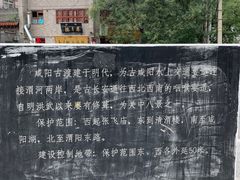 咸阳古渡建于明代，为古咸阳水上交通要
接渭河两岸，是古长安通往西北西南的咽喉要道，
自明洪武以来屡有修葺，为关中八景之一。
保护范围：西起张飞庙，东到清渭楼，南至咸
阳湖，北至渭阳东路。
建设控制地带：保护范围东、西各外延50米，